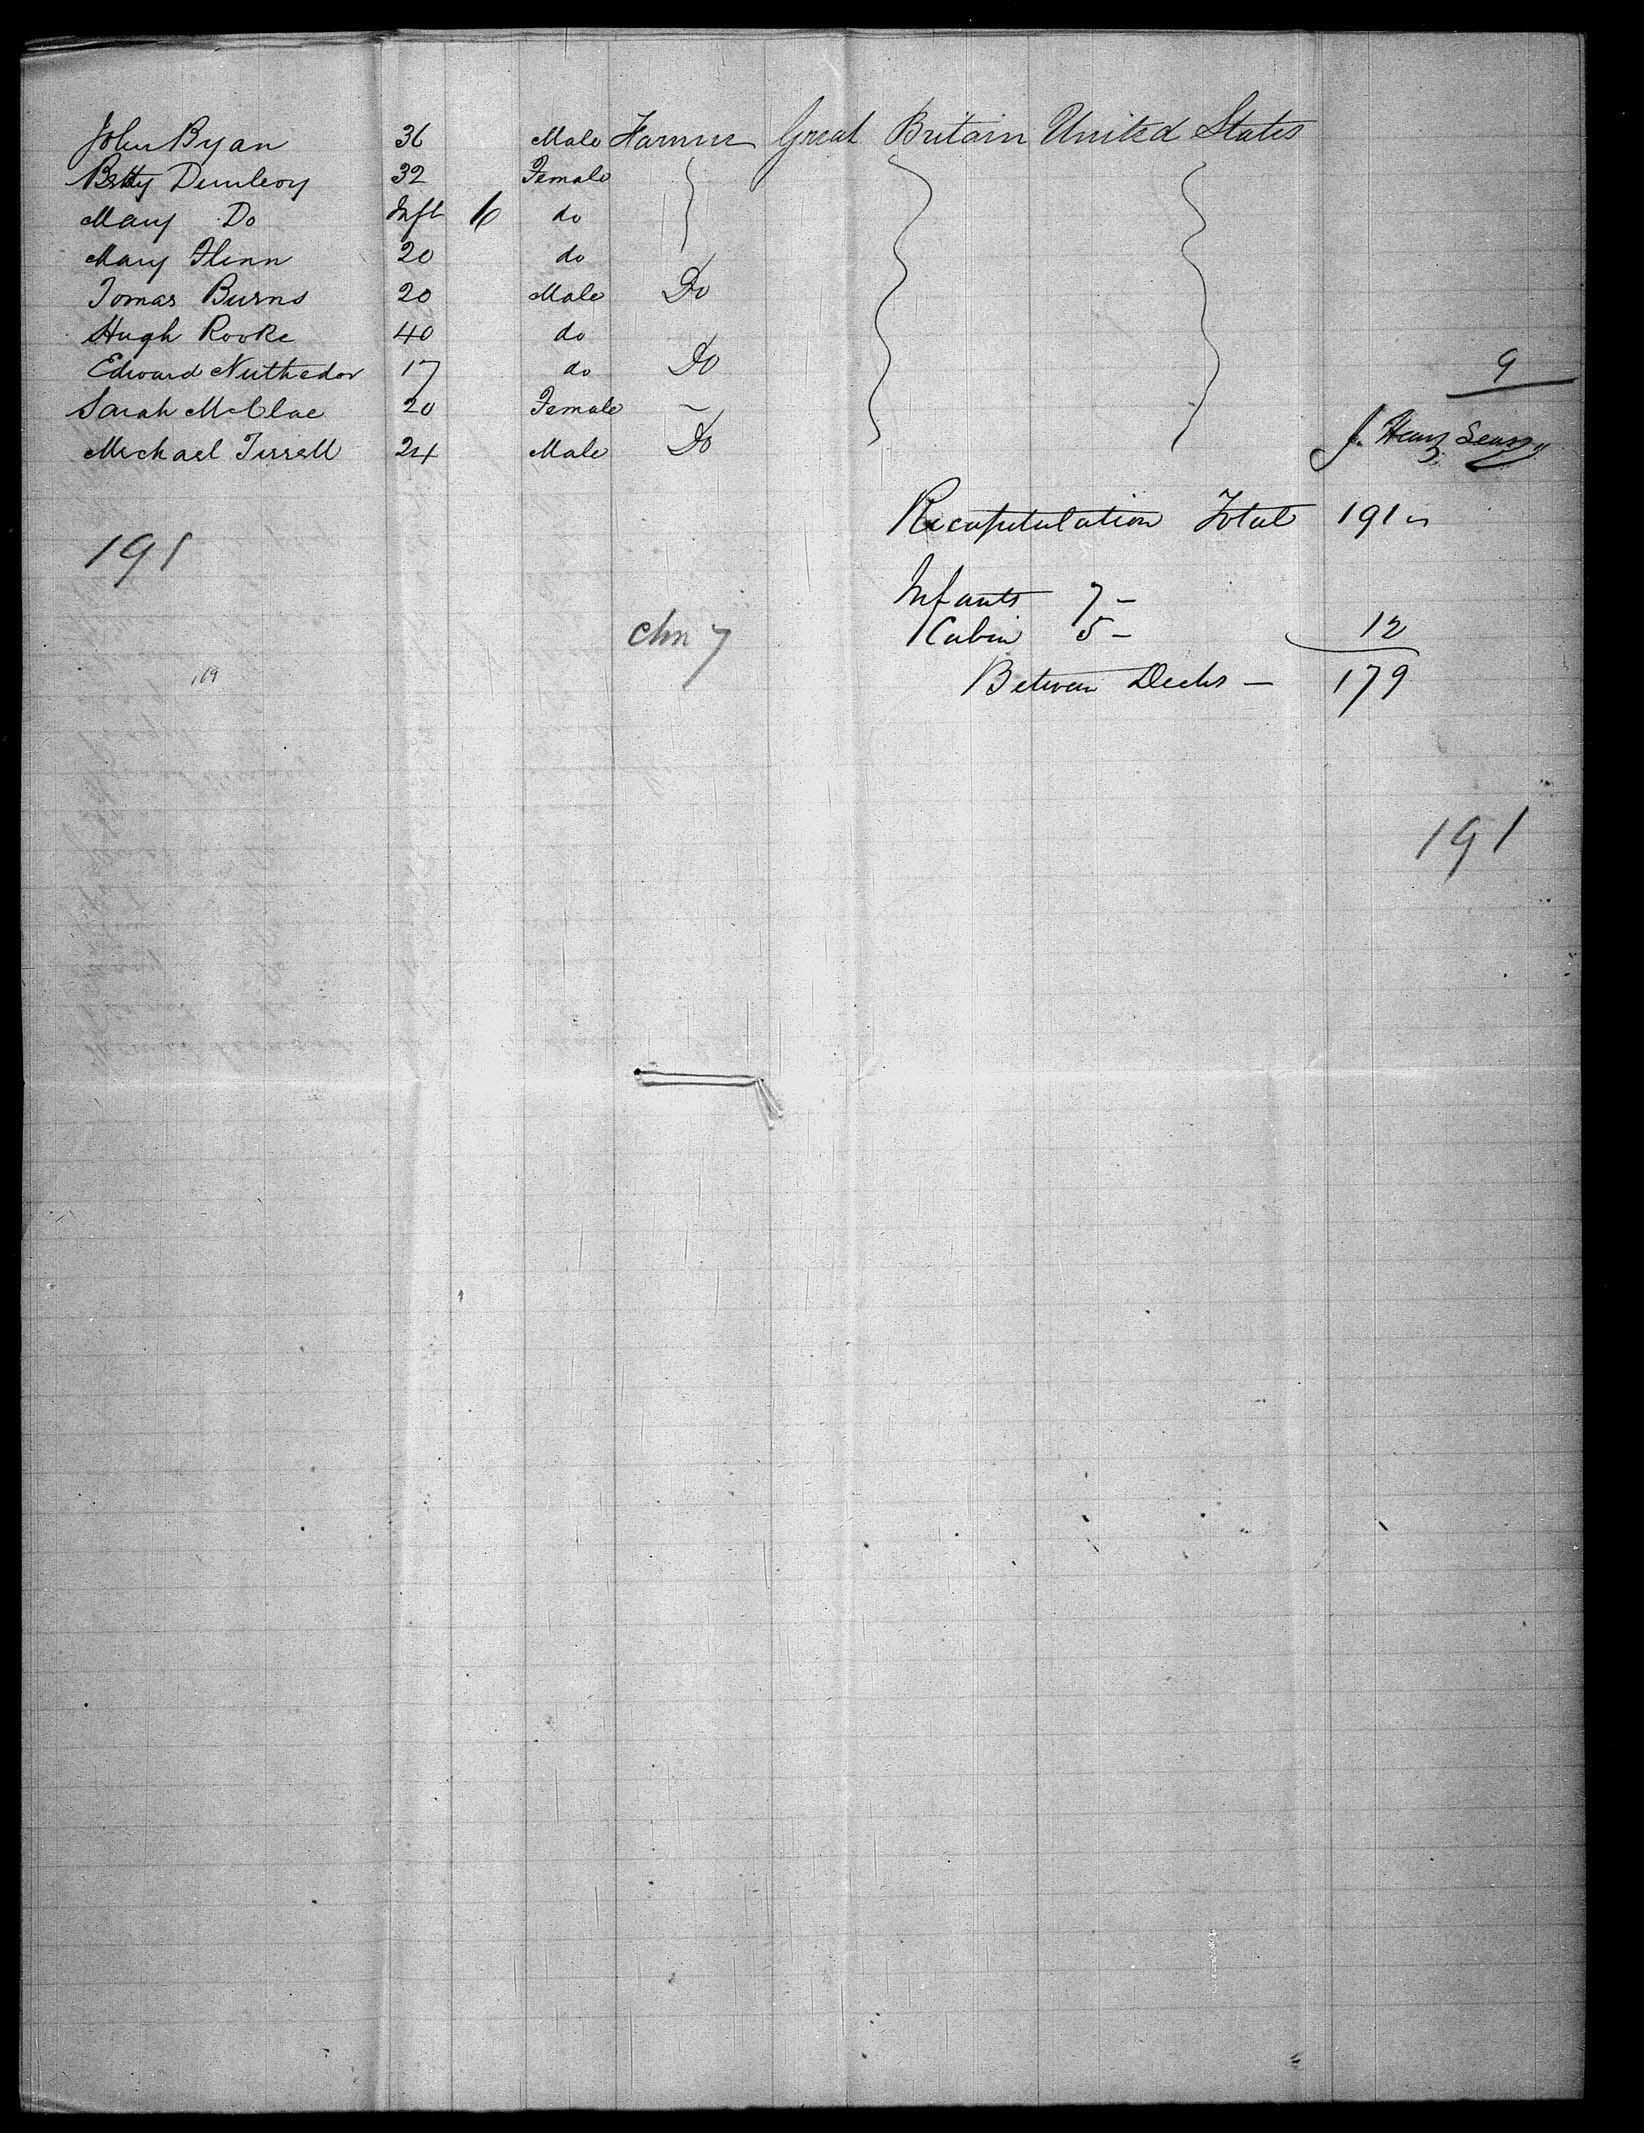 John Ryan 36 Male Farmer Great Britain United States
Betty Dunleoy 32 Female
Mary Do Inft 6 do
Mary Flinn 20 do
Tomas Burns 20 Male Do
Hugh Rooke 40 do
Edward Nuthedor 17 do Do 9
Sarah McClae 20 Female -
Michael Tirrell 24 Male Do J. Henry
Recapitulation Total 191
191
Infants 7 -
chn 7 Cabin 5 - 12
169 Between Decks - 179
191